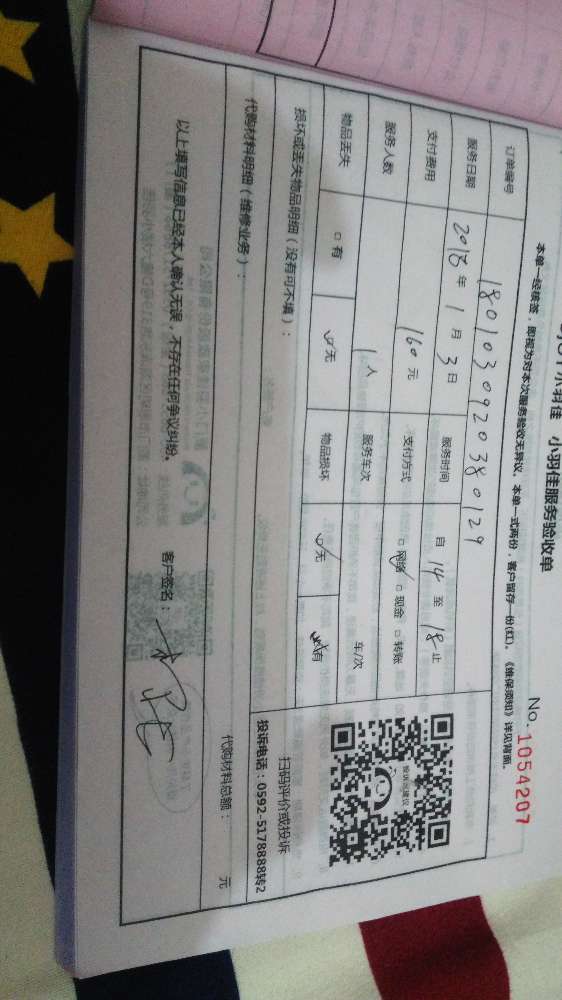 小羽佳 小羽佳服务验收单
No. 1054207
本单一经核签，即视为对本次服务验收无异议。本单一式两份，客户留存一份(红)。《维保须知》详见背面。
订单编号 1801030920380129
服务日期 2018年1月3日 服务时间 自14至18止
支付费用 160元 支付方式 □网络 □现金 □转账
服务人数 1人 服务车次 车/次
物品丢失 □有 □无 物品损坏 □无 □有
损坏或丢失物品明细（没有可不填）：
扫码评价或投诉
投诉电话：0592-5178888转2
代购材料明细（维修业务）：
代购材料总额： 元
以上填写信息已经本人确认无误，不存在任何争议纠纷。
客户签名：